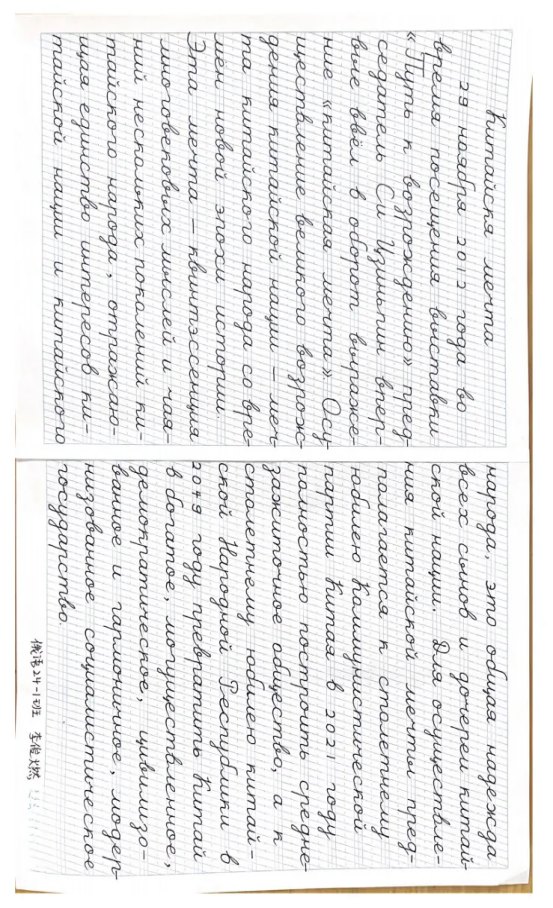 Китайскя мечта
29 ноября 2012 года во
время посещения выставки
«Путь к возрождению» пред-
седатель Си Цзиньпин впер-
вые ввёл в оборот выраже-
ние «китайская мечта». Осу-
ществление великого возрож-
дения китайской нации – меч-
та китайского народа со вре-
мён новой эпохи истории.
Эта мечта – квинтэссенция
многовековых мыслей и чая-
ний нескольких поколений ки-
тайского народа, отражаю-
щая единство интересов ки-
тайской нации и китайского
народа, это общая надежда
всех сынов и дочерей китай-
ской нации. Для осуществле-
ния китайской мечты пред-
полагается к столетнему
юбилею Коммунистической
партии Китая в 2021 году
полностью построить средне-
зажиточное общество, а к
столетнему юбилею китай-
ской Народной Республики в
2049 году превратить Китай
в богатое, могущественное,
демократическое, цивилизо-
ванное и гармоничное, модер-
низованное социалистическое
государство.
俄语24-1班 李俊燃